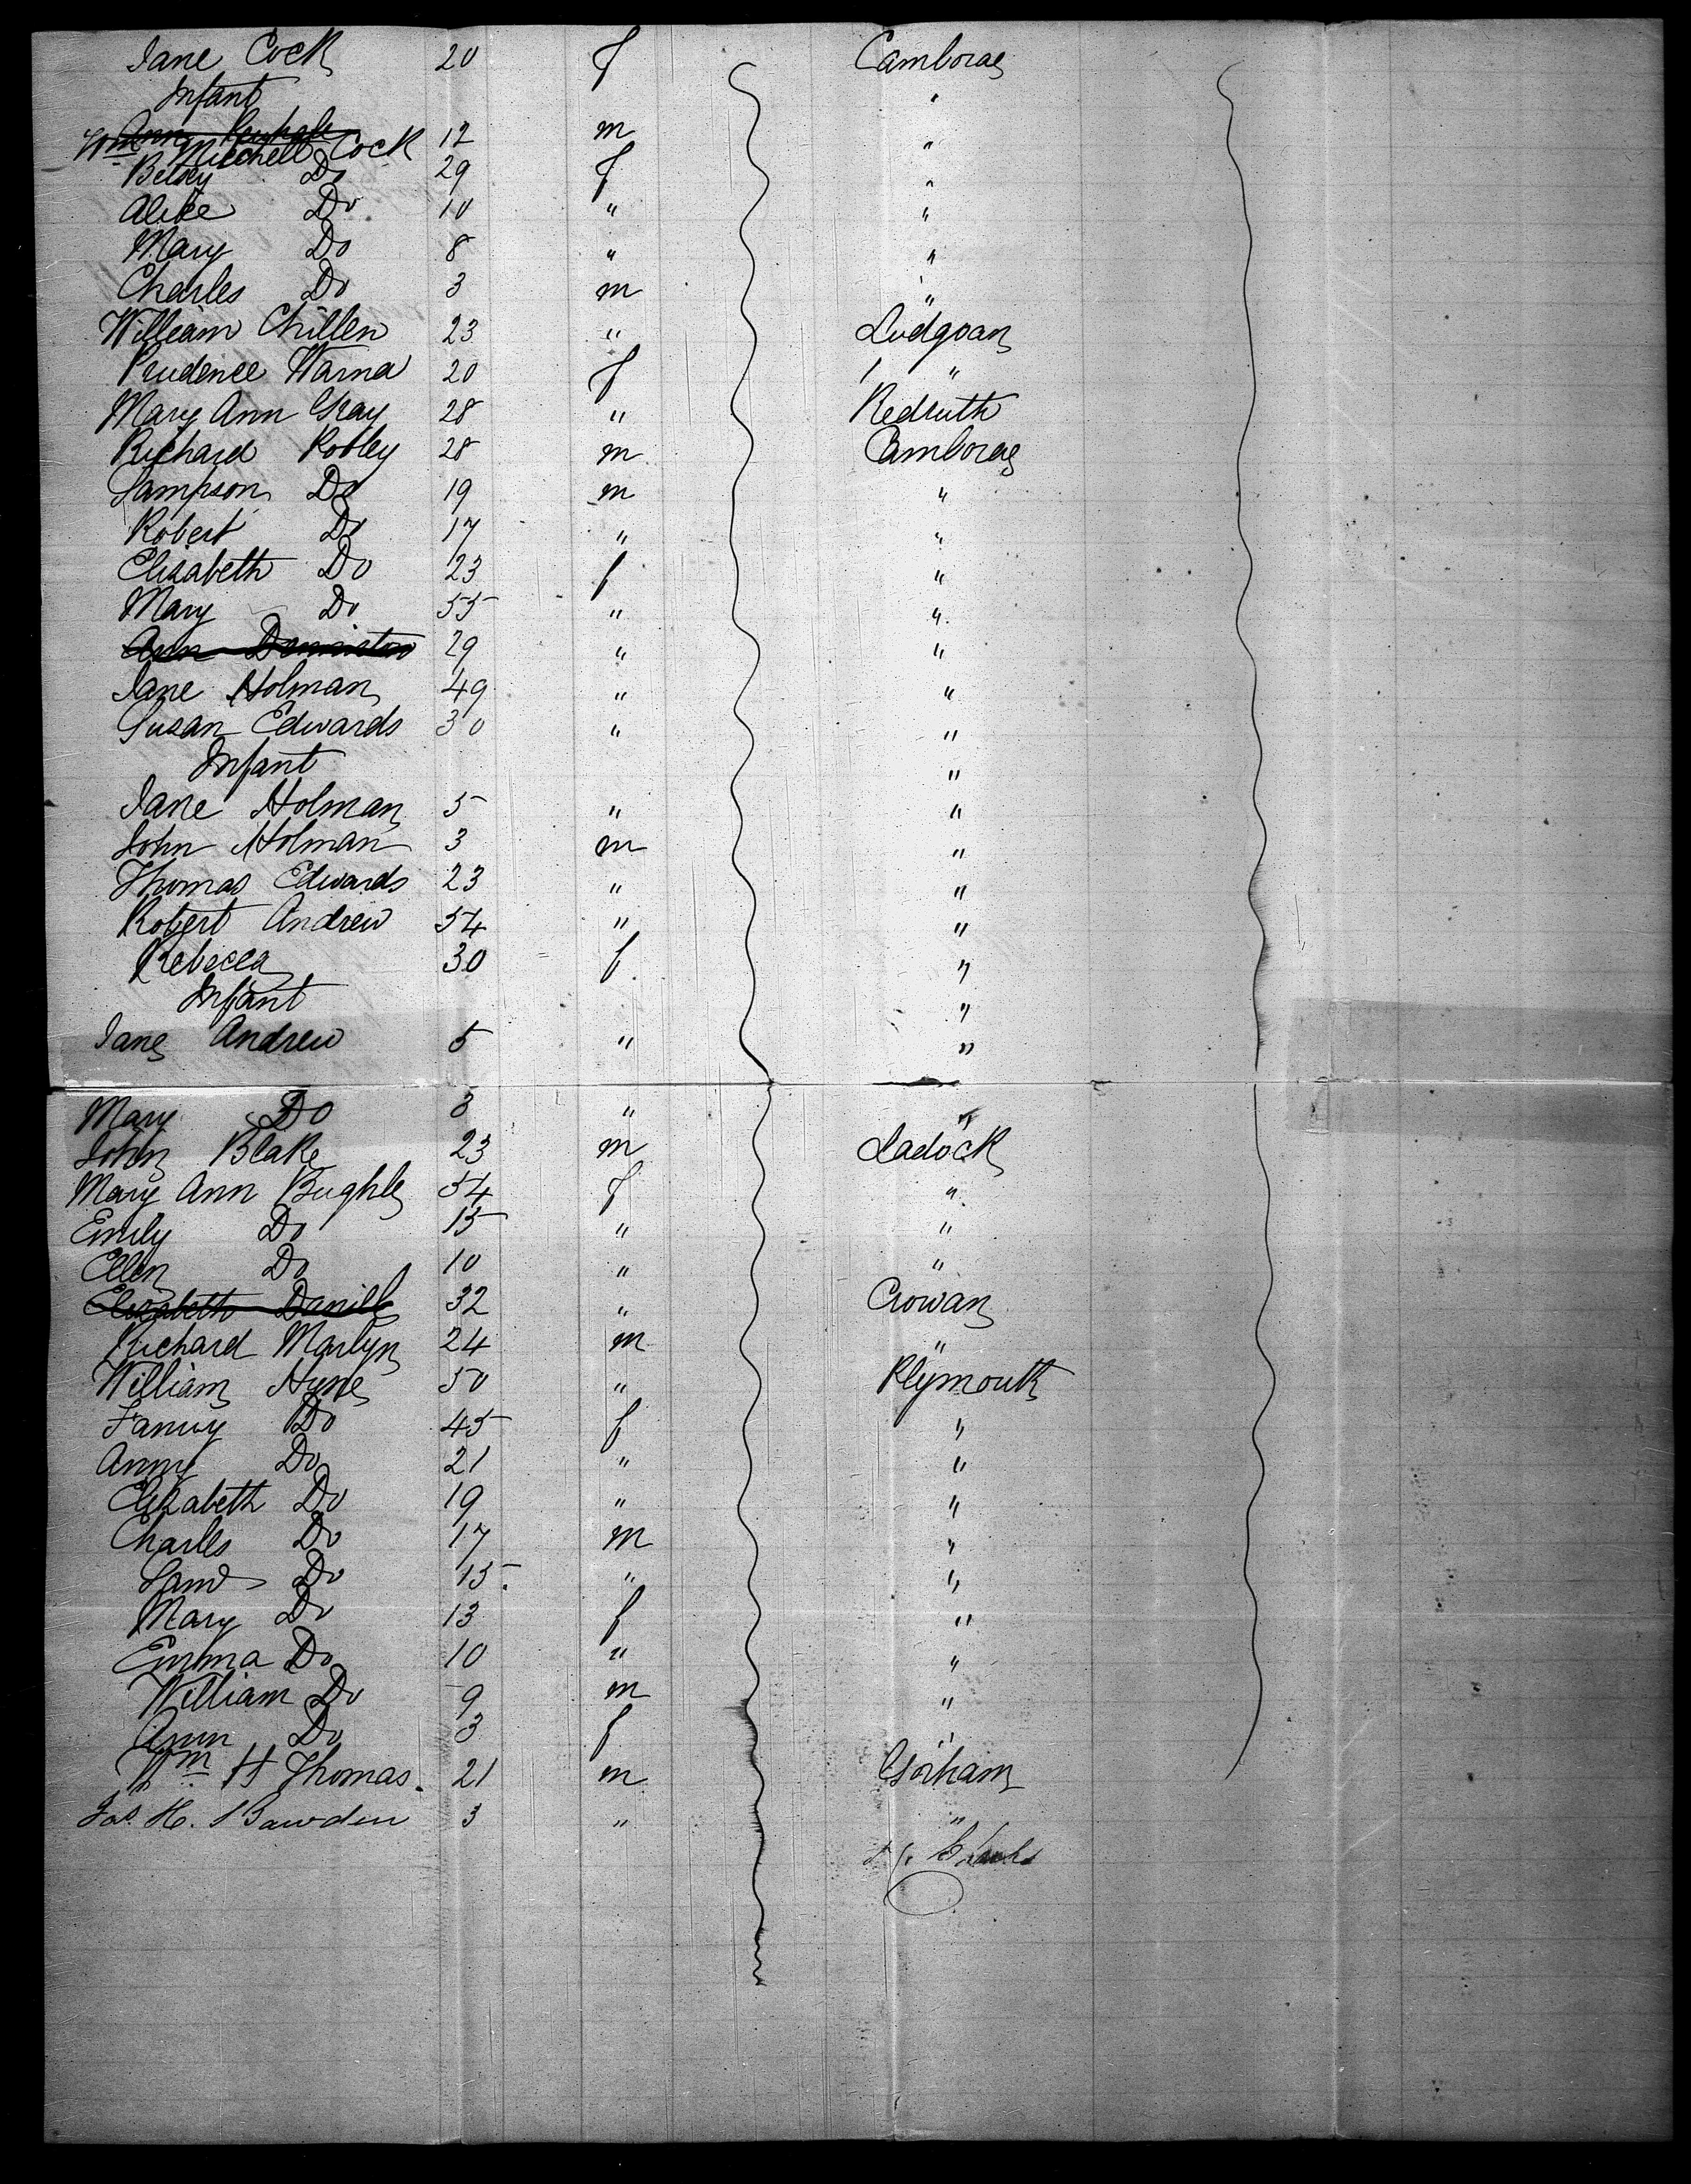 Jane Cock 20 f Camborne
Infant "
Ann
Wm Mitchell Cock 12 m "
Betsey Do 29 f "
Alice Do 10 " "
Mary Do 8 " "
Charles Do 3 m "
William Chillen 23 " Ludgoan
Prudence Warna 20 f "
Mary Ann Gray 28 " Redruth
Richard Robley 28 m Camborne
Sampson Do 19 m "
Robert Do 17 " "
Elizabeth Do 23 f "
Mary Do 55 " "
Ann 29 " "
Jane Holman 49 " "
Susan Edwards 30 " "
Infant "
Jane Holman 5 " "
John Holman 3 m "
Thomas Edwards 23 " "
Robert Andrew 54 " "
Rebecca 30 f "
Infant "
Jane Andrew 5 " "
Mary Do 3 " "
John Blake 23 m Ladock
Mary Ann 54 f "
Emily Do 15 " "
Ellen Do 10 " "
Elizabeth Daniell 32 " Crowan
Richard Martyn 24 m "
William Hyne 50 " Plymouth
Fanny Do 45 f "
Anny Do 21 " "
Elizabeth Do 19 " "
Charles Do 17 m "
Do 15 " "
Mary Do 13 f "
Emma Do 10 " "
William Do 9 m "
Ann Do 3 f "
Wm H Thomas 21 m Gorham
Jas. H. Bawden 3 " "